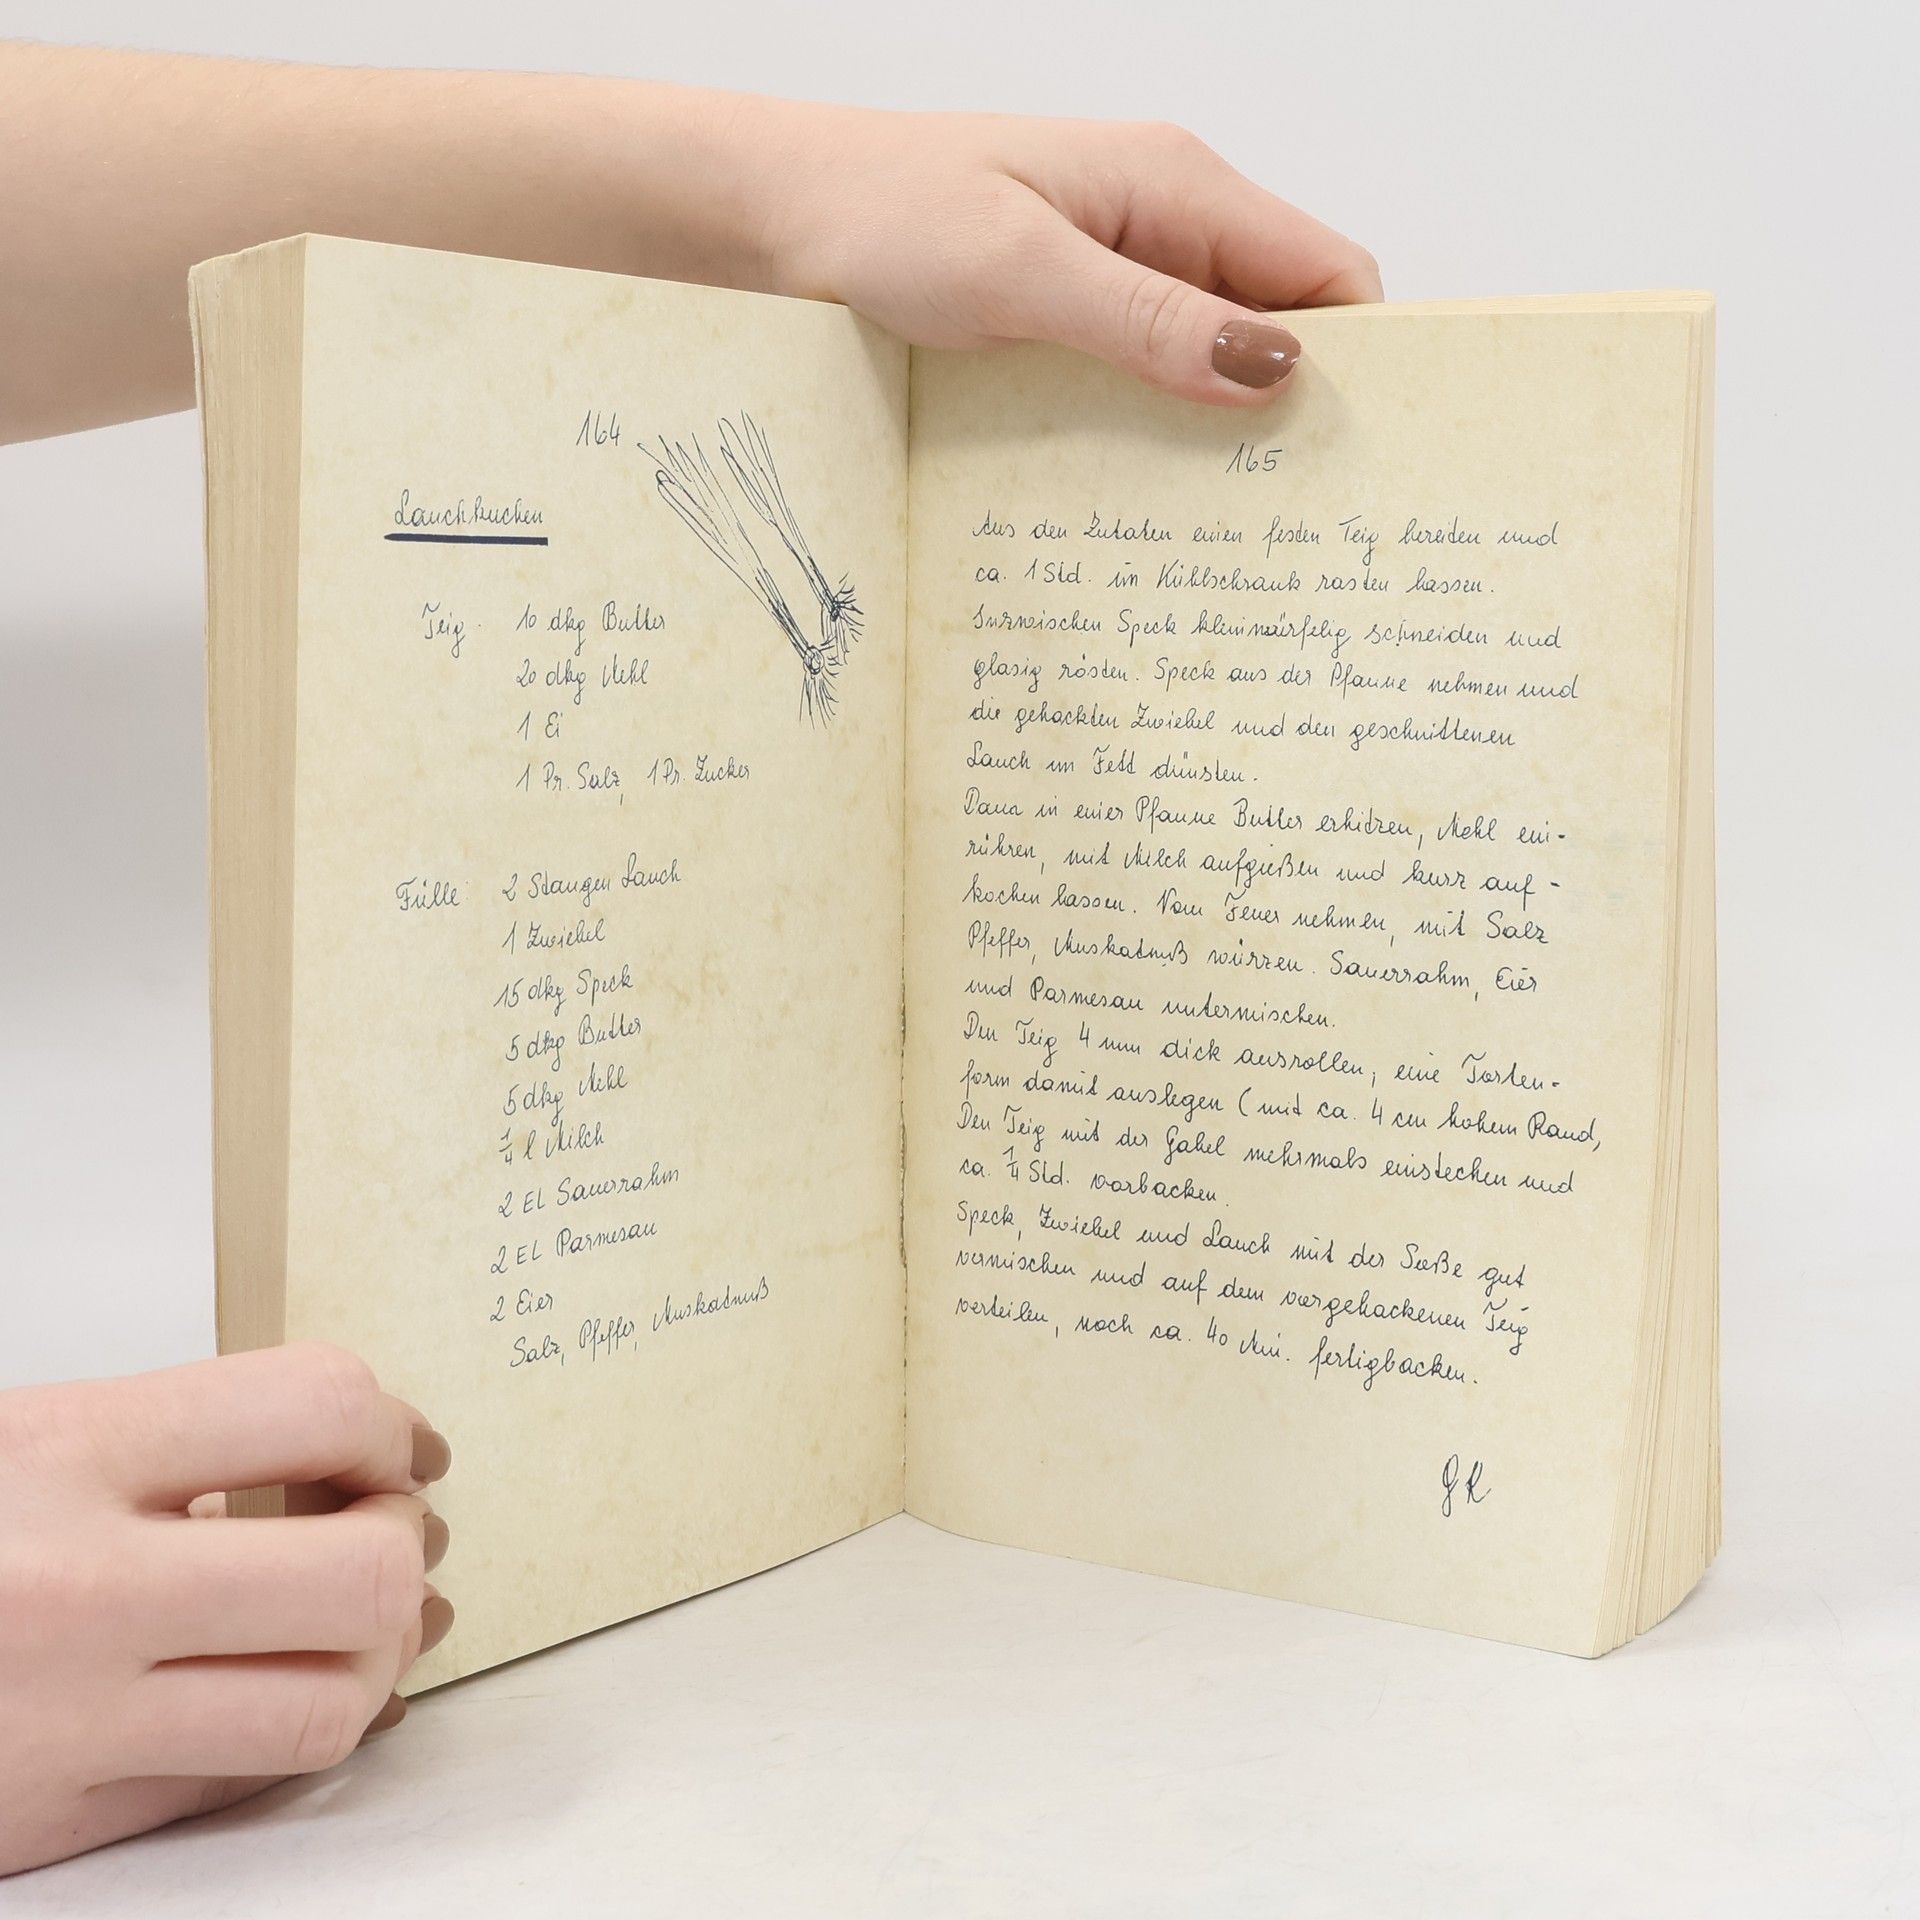 164
Lauchkuchen
Teig: 10 dkg Butter
20 dkg Mehl
1 Ei
1 Pr. Salz, 1 Pr. Zucker
Fülle: 2 Stangen Lauch
1 Zwiebel
15 dkg Speck
5 dkg Butter
5 dkg Mehl
1/4 l Milch
2 EL Sauerrahm
2 EL Parmesan
2 Eier
Salz, Pfeffer, Muskatnuß
165
Aus den Zutaten einen festen Teig bereiten und
ca. 1 Std. im Kühlschrank rasten lassen.
Inzwischen Speck kleinwürfelig schneiden und
glasig rösten. Speck aus der Pfanne nehmen und
die gehackten Zwiebel und den geschnittenen
Lauch im Fett dünsten.
Dann in einer Pfanne Butter erhitzen, Mehl ein-
rühren, mit Milch aufgießen und kurz auf-
kochen lassen. Vom Feuer nehmen, mit Salz
Pfeffer, Muskatnuß würzen. Sauerrahm, Eier
und Parmesan untermischen.
Den Teig 4 mm dick ausrollen, eine Torten-
form damit auslegen (mit ca. 4 cm hohem Rand,
Den Teig mit der Gabel mehrmals einstechen und
ca. 1/4 Std. vorbacken.
Speck, Zwiebel und Lauch mit der Soße gut
vermischen und auf dem vorgebackenen Teig
verteilen, noch ca. 40 Min. fertigbacken.
GR